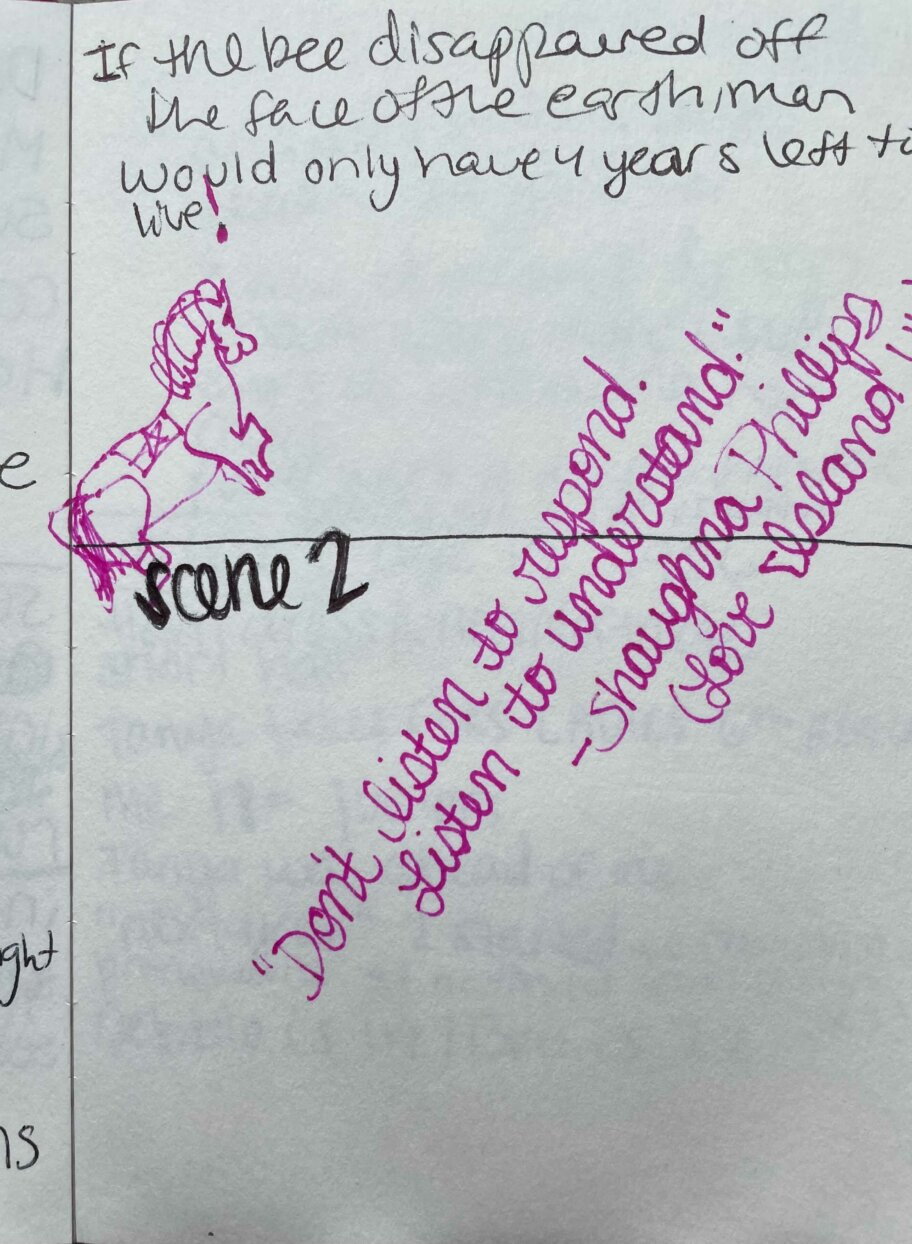 If the bee disappared off
the face of the earth, man
would only have 4 years left to
live!
e
scene 2
"Don't listen to respond.
Listen to understand."
-Shaughna Phillips
(Love Island)
ght
ns